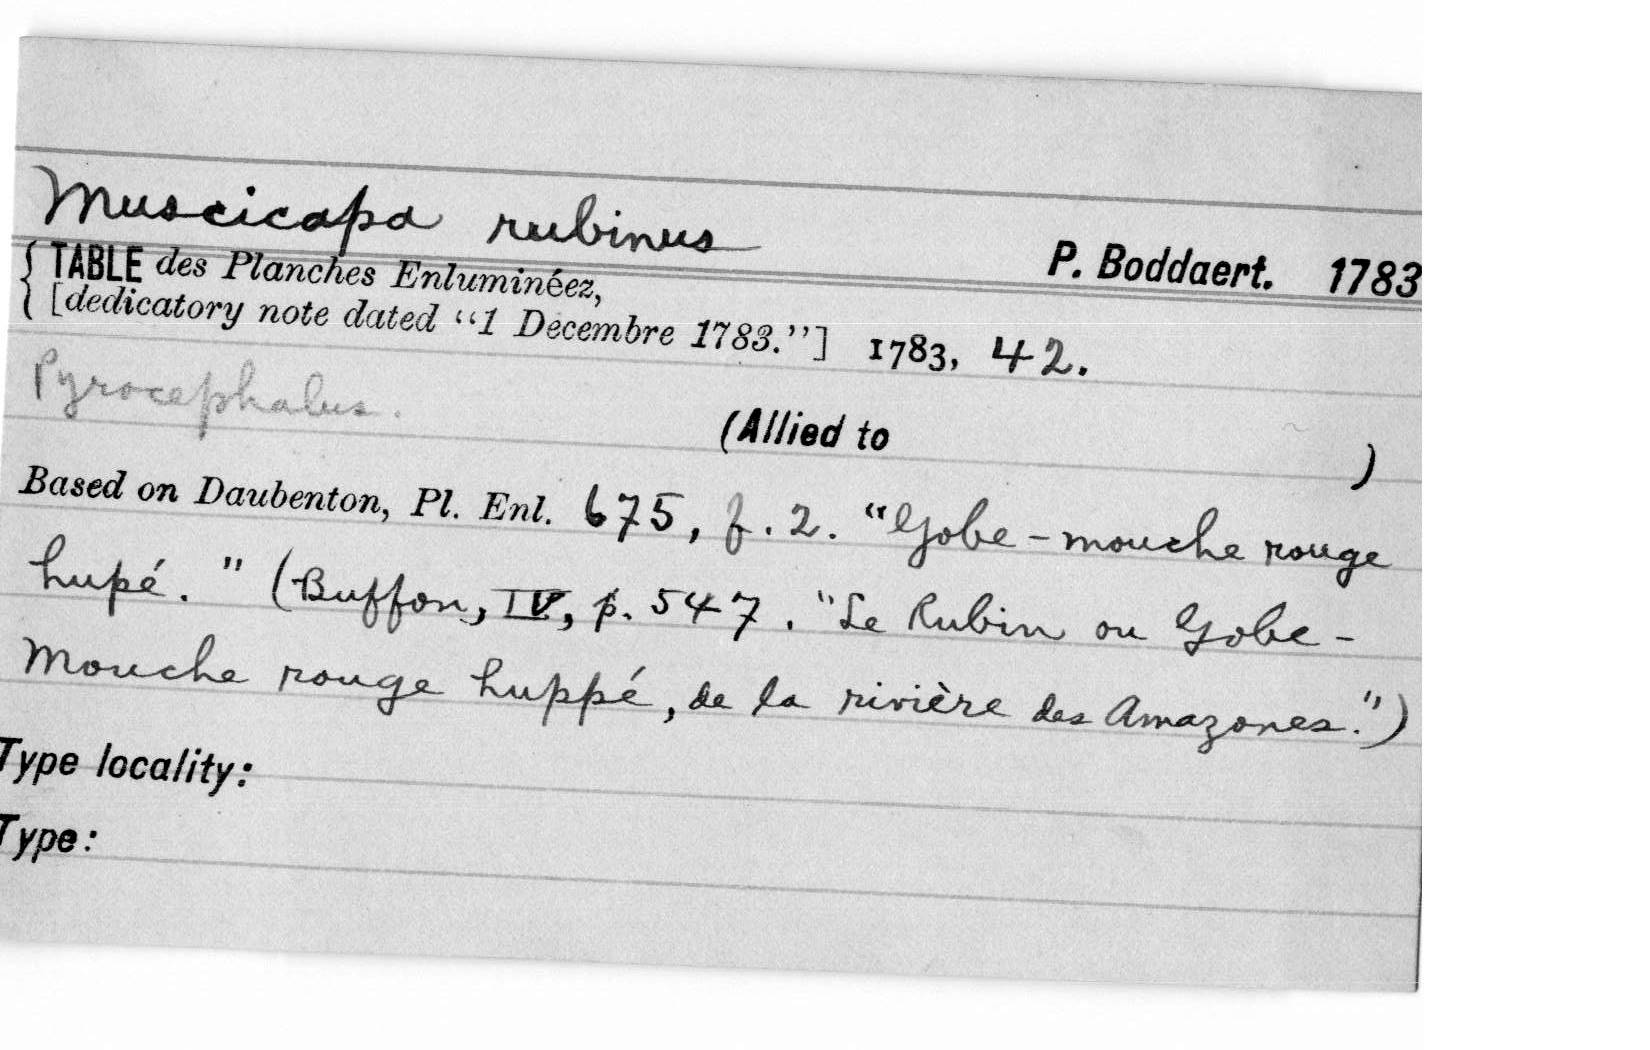 Muscicapa rubinus
P. Boddaert. 1783
TABLE des Planches Enluminéez,
[dedicatory note dated “1 Decembre 1783.”] 1783, 42.
Pyrocephalus.
(Allied to )
Based on Daubenton, Pl. Enl. 675, f. 2. "Gobe-mouche rouge
hupé." (Buffon, IV, p. 547. "Le Rubin ou Gobe-
Mouche rouge huppé, de la rivière des Amazones.")
Type locality:
Type: